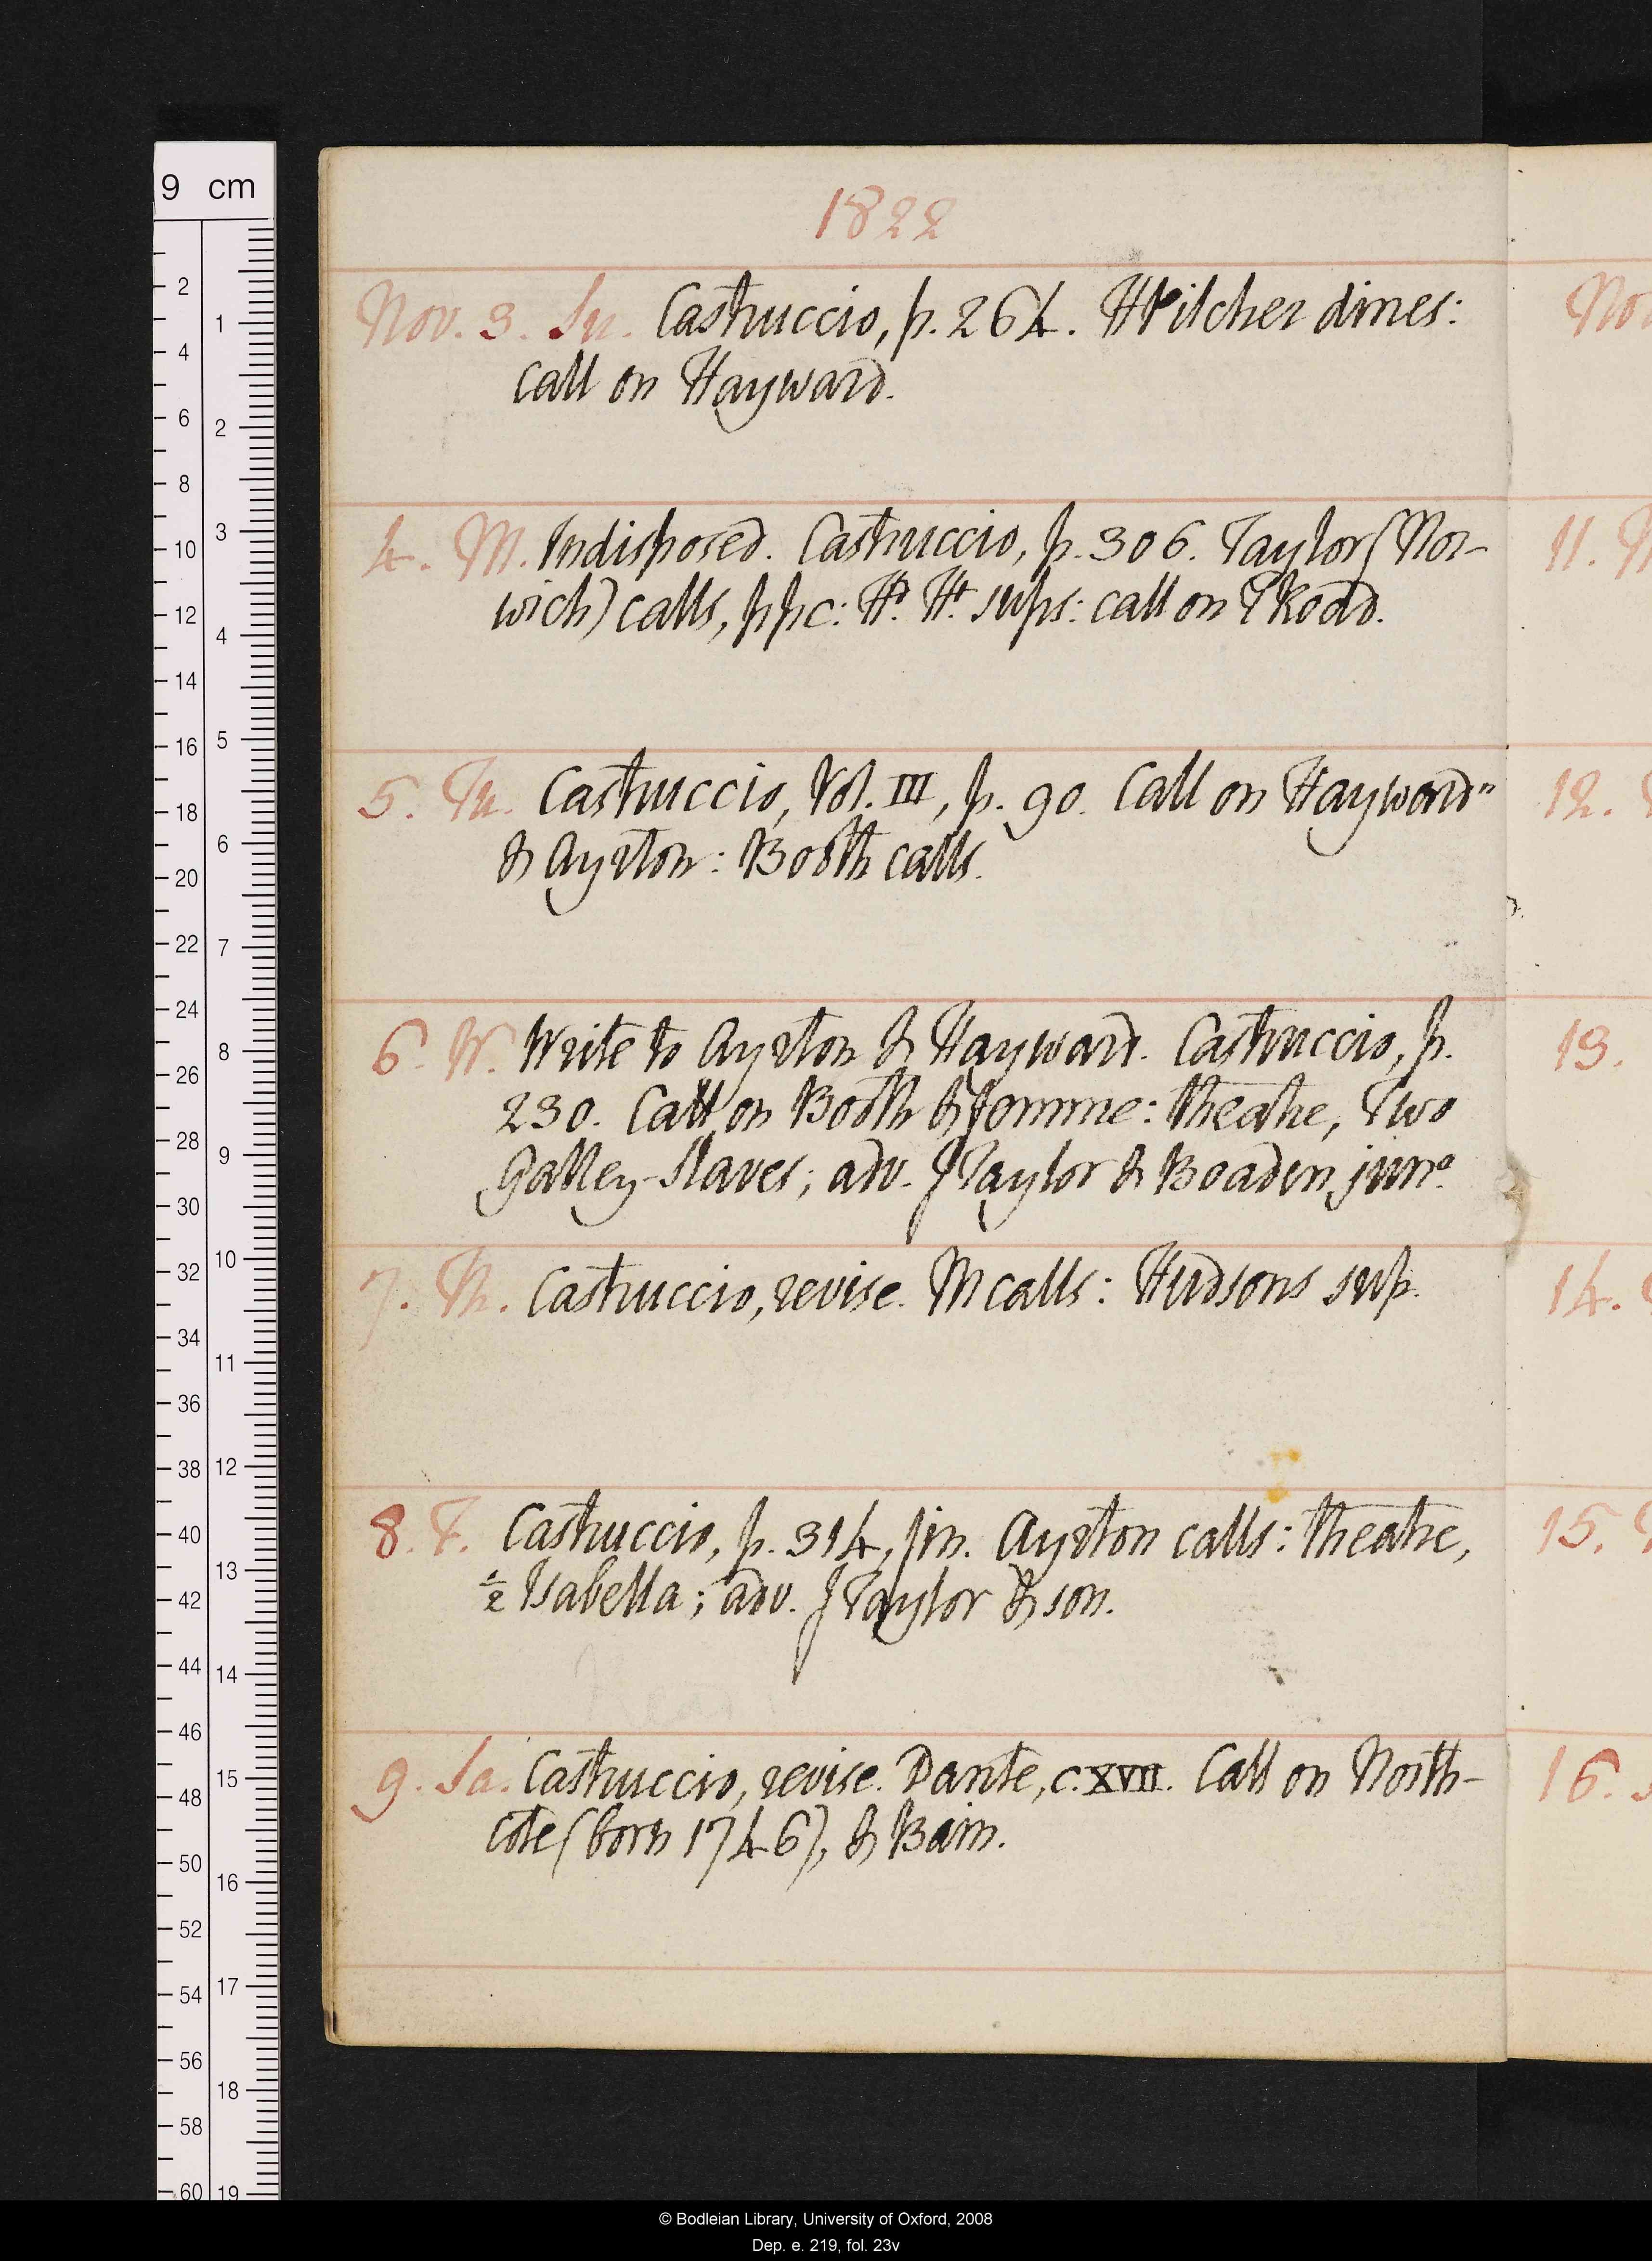 1822
Nov. 3. Su. Castruccio, p. 264. H Pilcher dines:
call on Hayward.
4. M. Indisposed. Castruccio, p. 306. Taylor (Nor-
wich) calls, ppc: Hd. Ht. sups: call on T Road.
5. Tu. Castruccio, Vol. III, p. 90. Call on Hayward n
& Ayrton: Booth calls.
6. W. Write to Ayrton & Hayward. Castruccio, p.
230. Call on Booth & femme: theatre, Two
Galley-Slaves; adv. J Taylor & Boaden, junr.
7. Th. Castruccio, revise. M calls: Hudsons sup.
8. F. Castruccio, p. 314, fin. Ayrton calls: theatre,
½ Isabella; adv. J Taylor & son.
9. Sa. Castruccio, revise. Dante, c. XVII. Call on North-
cote (born 1746), & Bain.
Nov
11. M
12.
13.
14.
15.
16.
9 cm
2
4
6
8
10
12
14
16
18
20
22
24
26
28
30
32
34
36
38
40
42
44
46
48
50
52
54
56
58
60
1
2
3
4
5
6
7
8
9
10
11
12
13
14
15
16
17
18
19
© Bodleian Library, University of Oxford, 2008
Dep. e. 219, fol. 23v